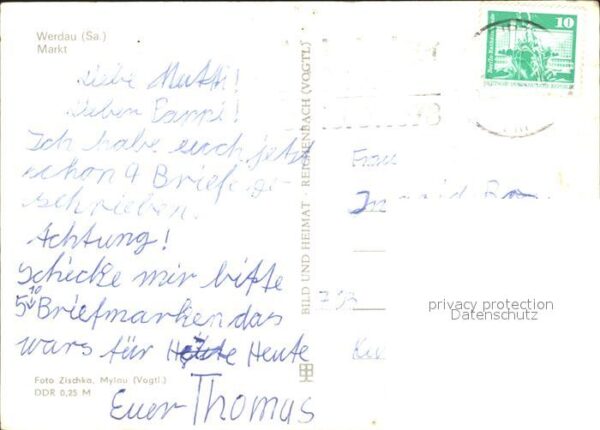 Werdau (Sa.)
Markt
Liebe Mutti!
Lieber Pappi!
Ich habe euch jetzt
schon 9 Briefe ge-
schrieben.
Achtung!
Schicke mir bitte
10
5 Briefmarken das
wars für Heute
Euer Thomas
Foto Zischka, Mylau (Vogtl.)
DDR 0,25 M
BILD UND HEIMAT · REICHENBACH (VOGTL)
10
Frau
privacy protection
Datenschutz